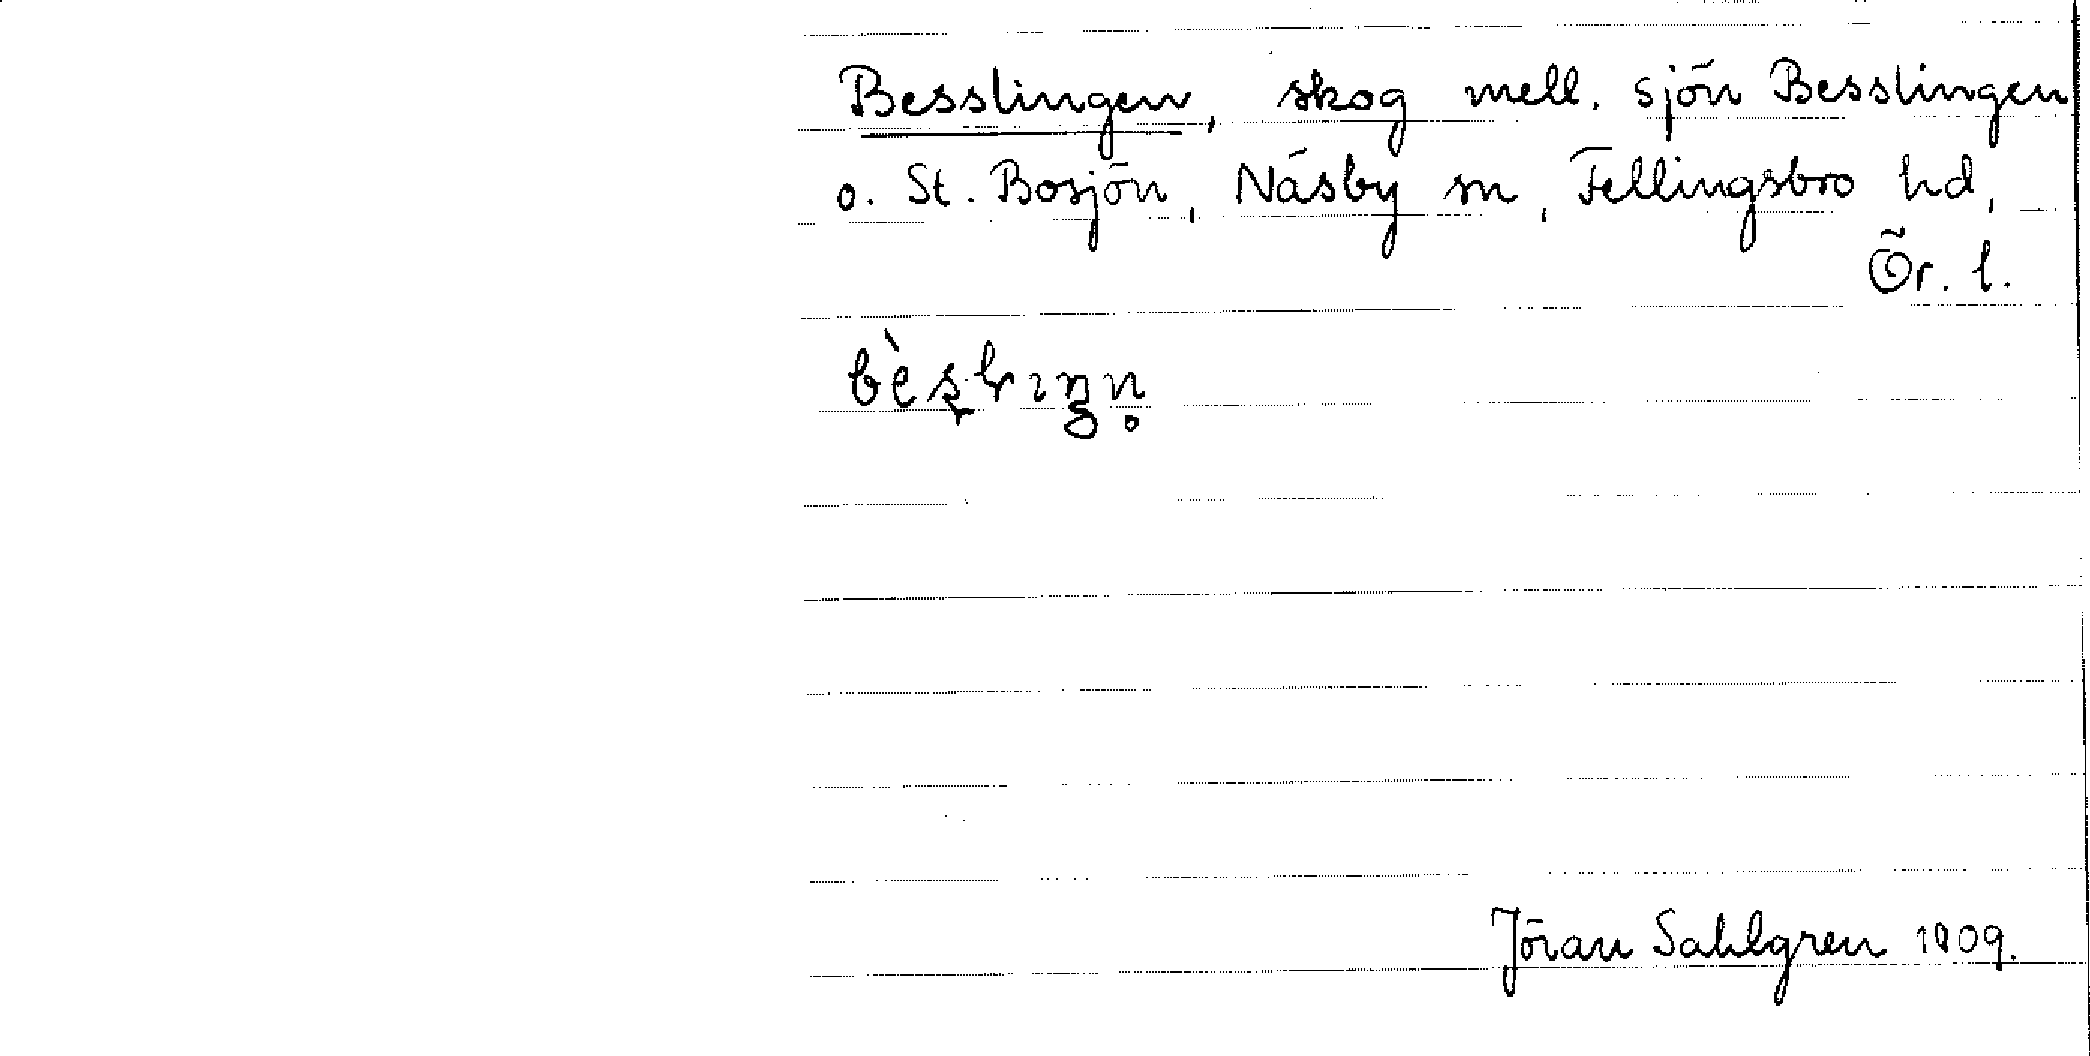 Besslingen, skog mell. sjön Besslingen
o. St. Bosjön, Näsby sn, Fellingsbro hd,
Ör. l.
Jöran Sahlgren 1909.